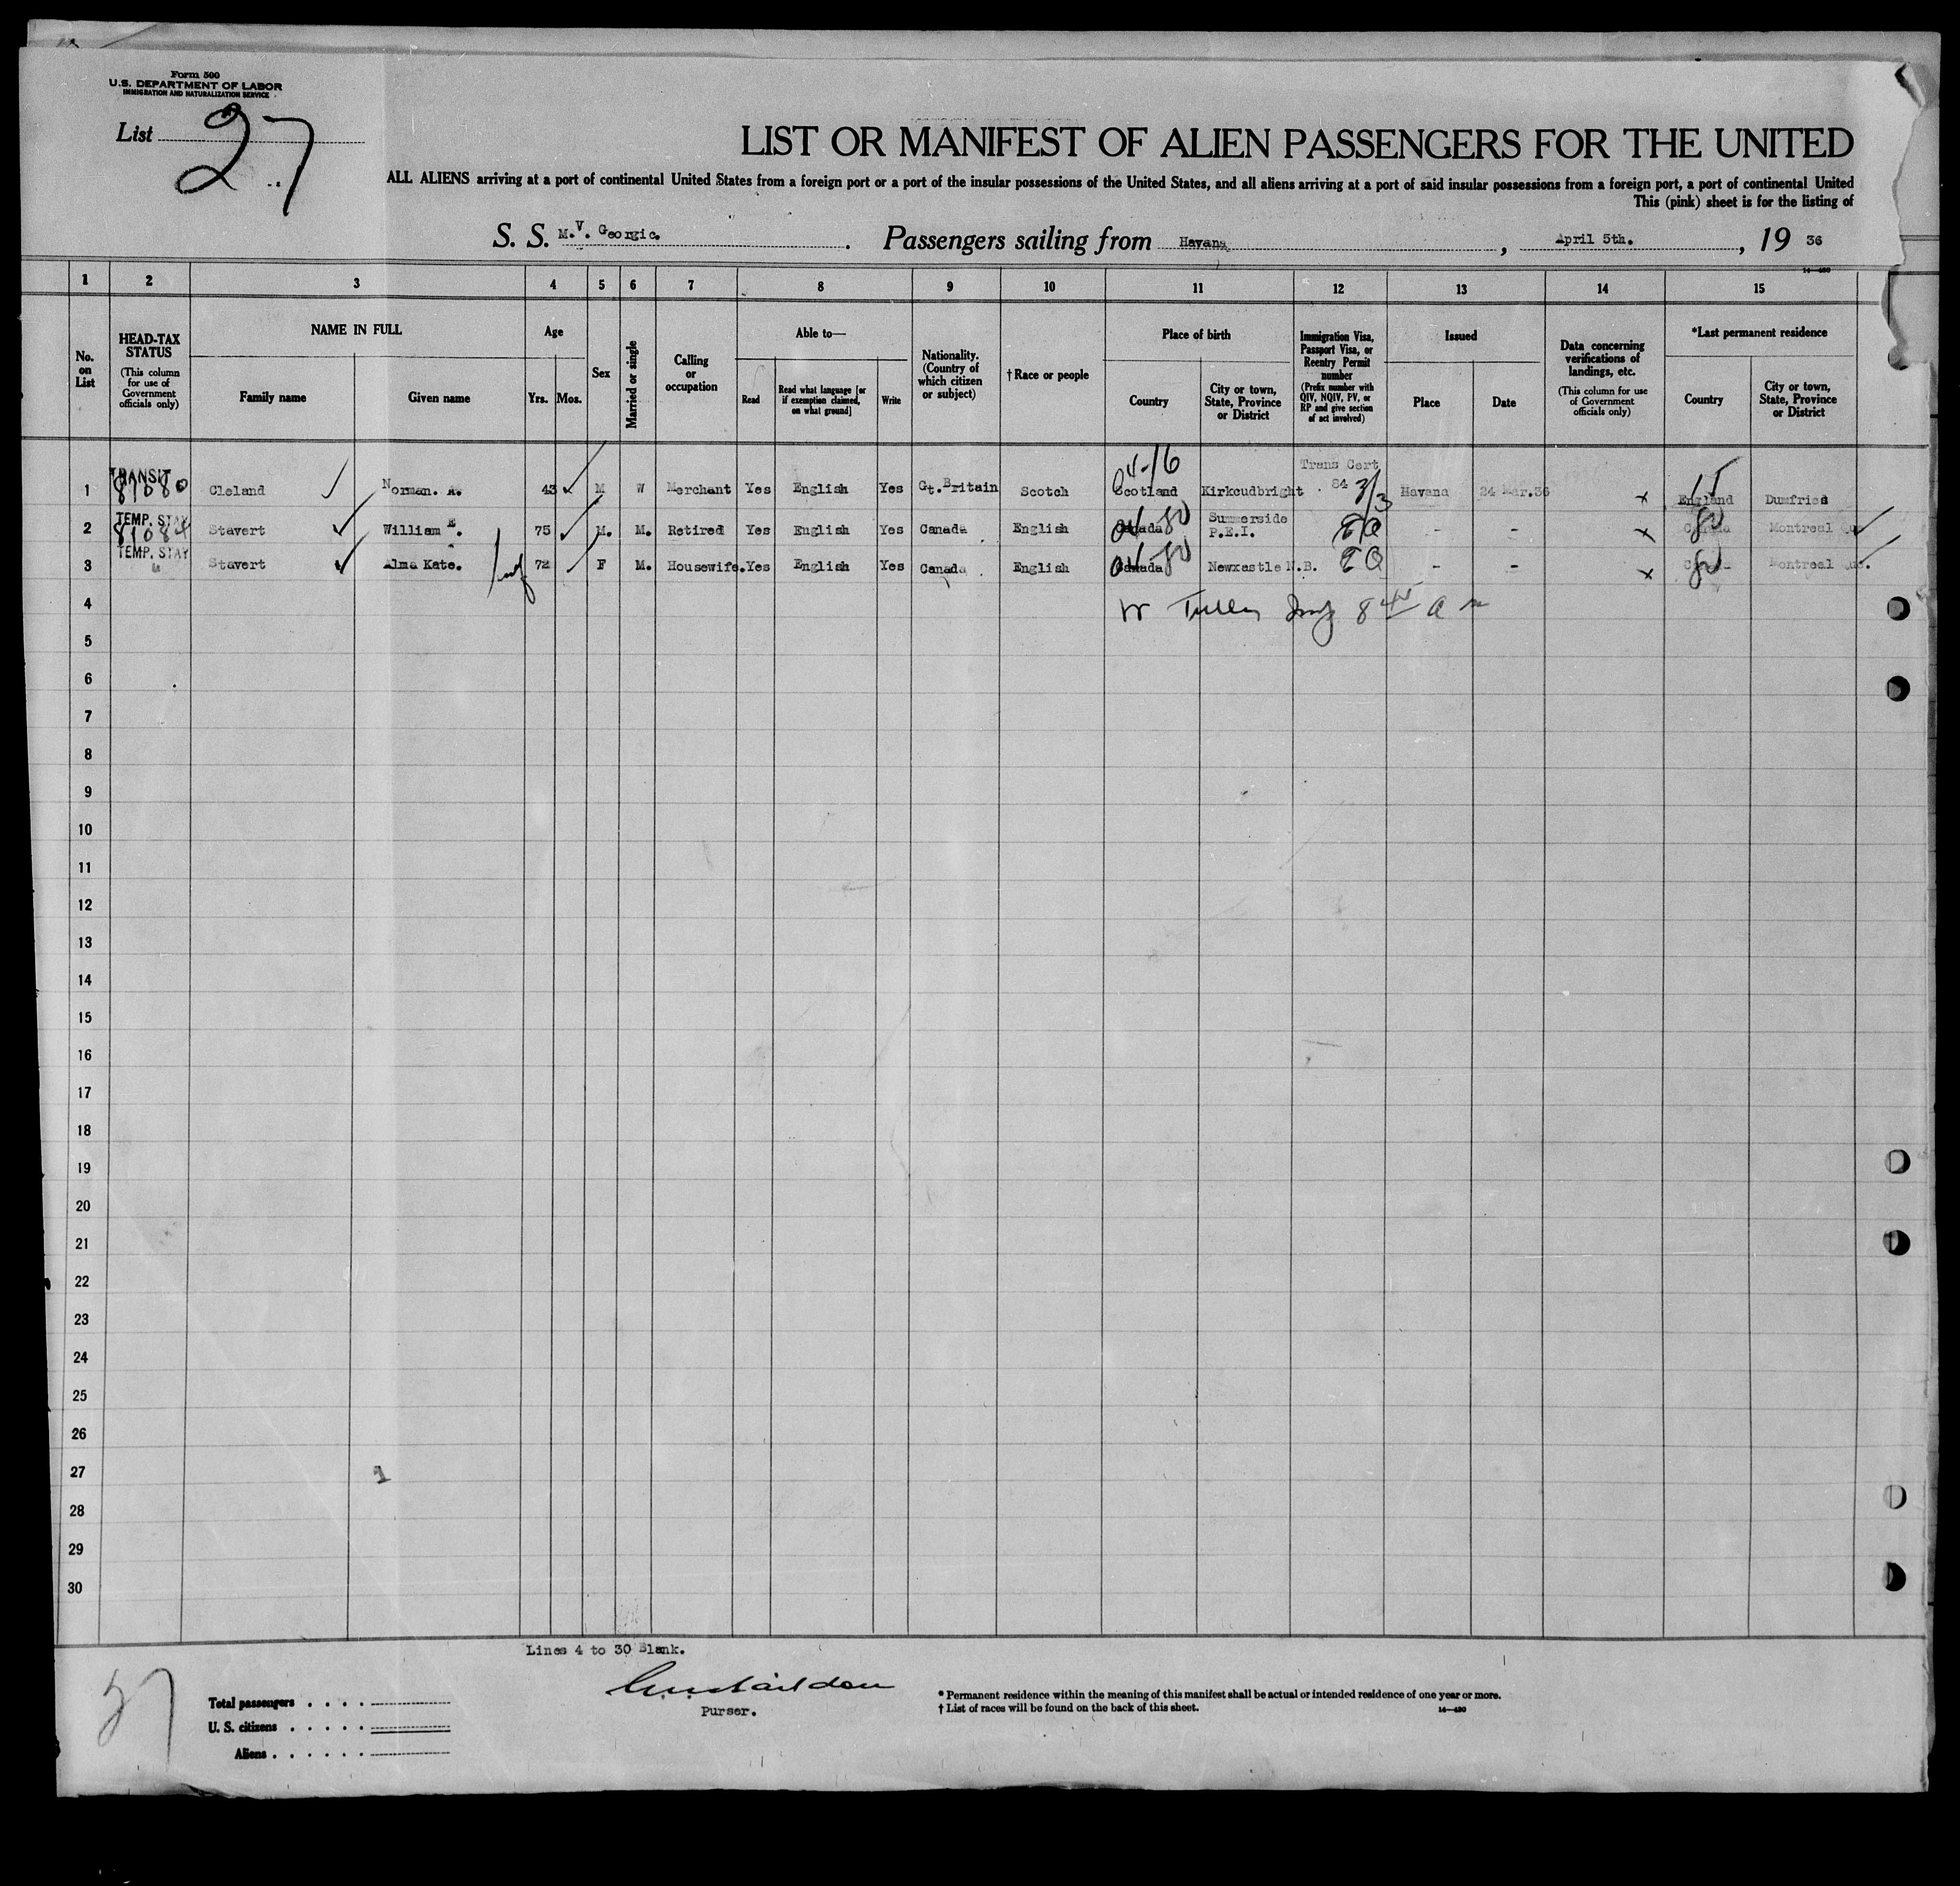 Form 500
U.S. DEPARTMENT OF LABOR
IMMIGRATION AND NATURALIZATION SERVICE
List 27
LIST OR MANIFEST OF ALIEN PASSENGERS FOR THE UNITED
ALL ALIENS arriving at a port of continental United States from a foreign port or a port of the insular possessions of the United States, and all aliens arriving at a port of said insular possessions from a foreign port, a port of continental United
This (pink) sheet is for the listing of
S. S. M.V. Georgic. Passengers sailing from Havana, April 5th., 19 36
14—430
1 2 3 4 5 6 7 8 9 10 11 12 13 14 15
No. on List
HEAD-TAX STATUS (This column for use of Government officials only)
NAME IN FULL
Family name Given name
Age
Yrs. Mos.
Sex
Married or single
Calling or occupation
Able to—
Read Read what language [or if exemption claimed, on what ground] Write
Nationality. (Country of which citizen or subject)
† Race or people
Place of birth
Country City or town, State, Province or District
Immigration Visa, Passport Visa, or Reentry Permit number (Prefix number with QIV, NQIV, PV, or RP and give section of act involved)
Issued
Place Date
Data concerning verifications of landings, etc. (This column for use of Government officials only)
*Last permanent residence
Country City or town, State, Province or District
04-16 Trans Cert
1 TRANSIT 81080 Cleland Norman. A. 43 M W Merchant Yes English Yes Gt. Britain Scotch Scotland Kirkcudbright 84 3/3 Havana 24 Mar.36 x England 15 Dumfries
2 TEMP. STAY 81084 Stavert William E. 75 M. M. Retired Yes English Yes Canada English Canada 04-80 Summerside P.E.I. - - x Canada 80 Montreal
3 TEMP. STAY " Stavert Alma Kate. 72 F M. Housewife. Yes English Yes Canada English Canada 04-80 Newxastle N.B. - - x 80 Montreal
4
5
6
7
8
9
10
11
12
13
14
15
16
17
18
19
20
21
22
23
24
25
26
27
28
29
30
Lines 4 to 30 Blank.
Purser.
Total passengers
U. S. citizens
Aliens
* Permanent residence within the meaning of this manifest shall be actual or intended residence of one year or more.
† List of races will be found on the back of this sheet.
14—430